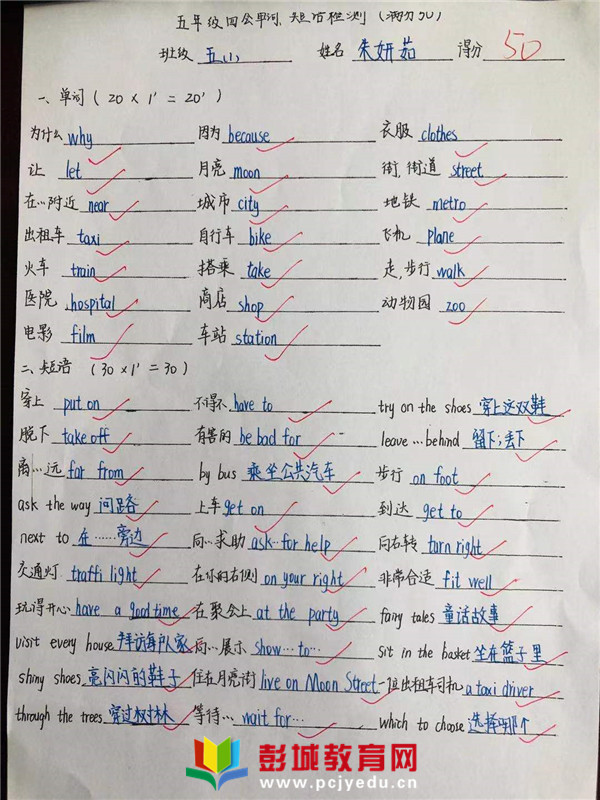 五年级四会单词、短语检测（满分50）
班级 五(1) 姓名 朱妍茹 得分 50
一、单词（20×1'=20'）
为什么 why 因为 because 衣服 clothes
让 let 月亮 moon 街,街道 street
在…附近 near 城市 city 地铁 metro
出租车 taxi 自行车 bike 飞机 plane
火车 train 搭乘 take 走,步行 walk
医院 hospital 商店 shop 动物园 zoo
电影 film 车站 station
二、短语（30×1'=30）
穿上 put on 不得不 have to try on the shoes 穿上这双鞋
脱下 take off 有害的 be bad for leave …behind 留下;丢下
离…远 far from by bus 乘坐公共汽车 步行 on foot
ask the way 问路 上车 get on 到达 get to
next to 在……旁边 向…求助 ask…for help 向右转 turn right
交通灯 traffi light 在你的右侧 on your right 非常合适 fit well
玩得开心 have a good time 在聚会上 at the party fairy tales 童话故事
visit every house 拜访每户人家 向…展示 show…to… sit in the basket 坐在篮子里
shiny shoes 亮闪闪的鞋子 住在月亮街 live on Moon Street 一位出租车司机 a taxi driver
through the trees 穿过树林 等待… wait for… which to choose 选择哪个
彭城教育网
www.pcjyedu.cn